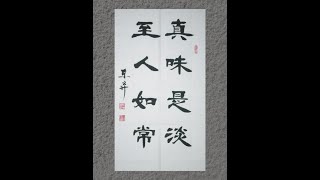 真味是淡
至人如常